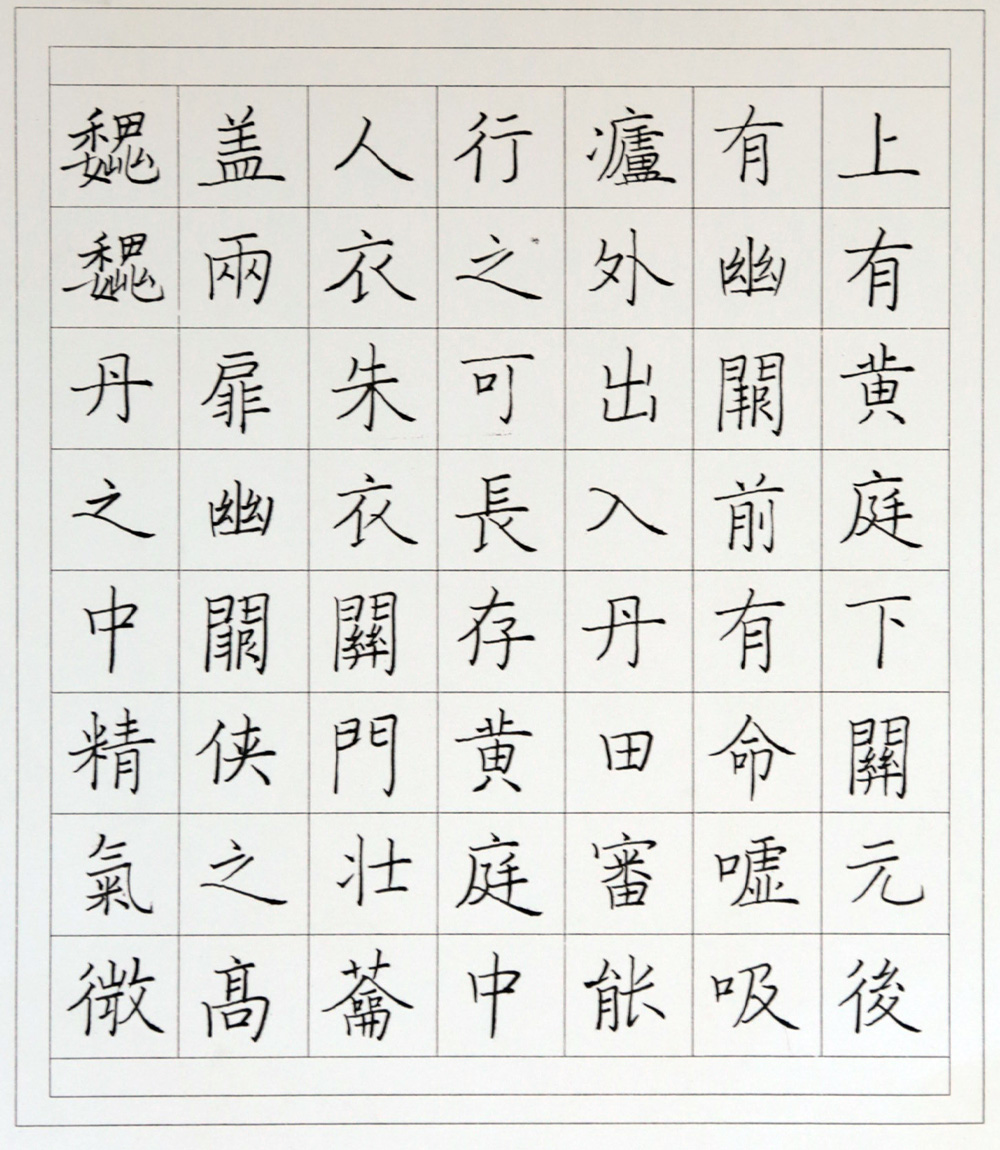 上有黄庭下關元後
有幽闕前有命嘘吸
廬外出入丹田審能
行之可長存黄庭中
人衣朱衣關門壮蘥
盖兩扉幽闕侠之高
魏魏丹之中精氣微